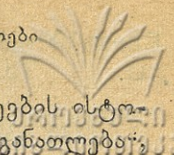 რები
ების ისტო-
განათლება“,